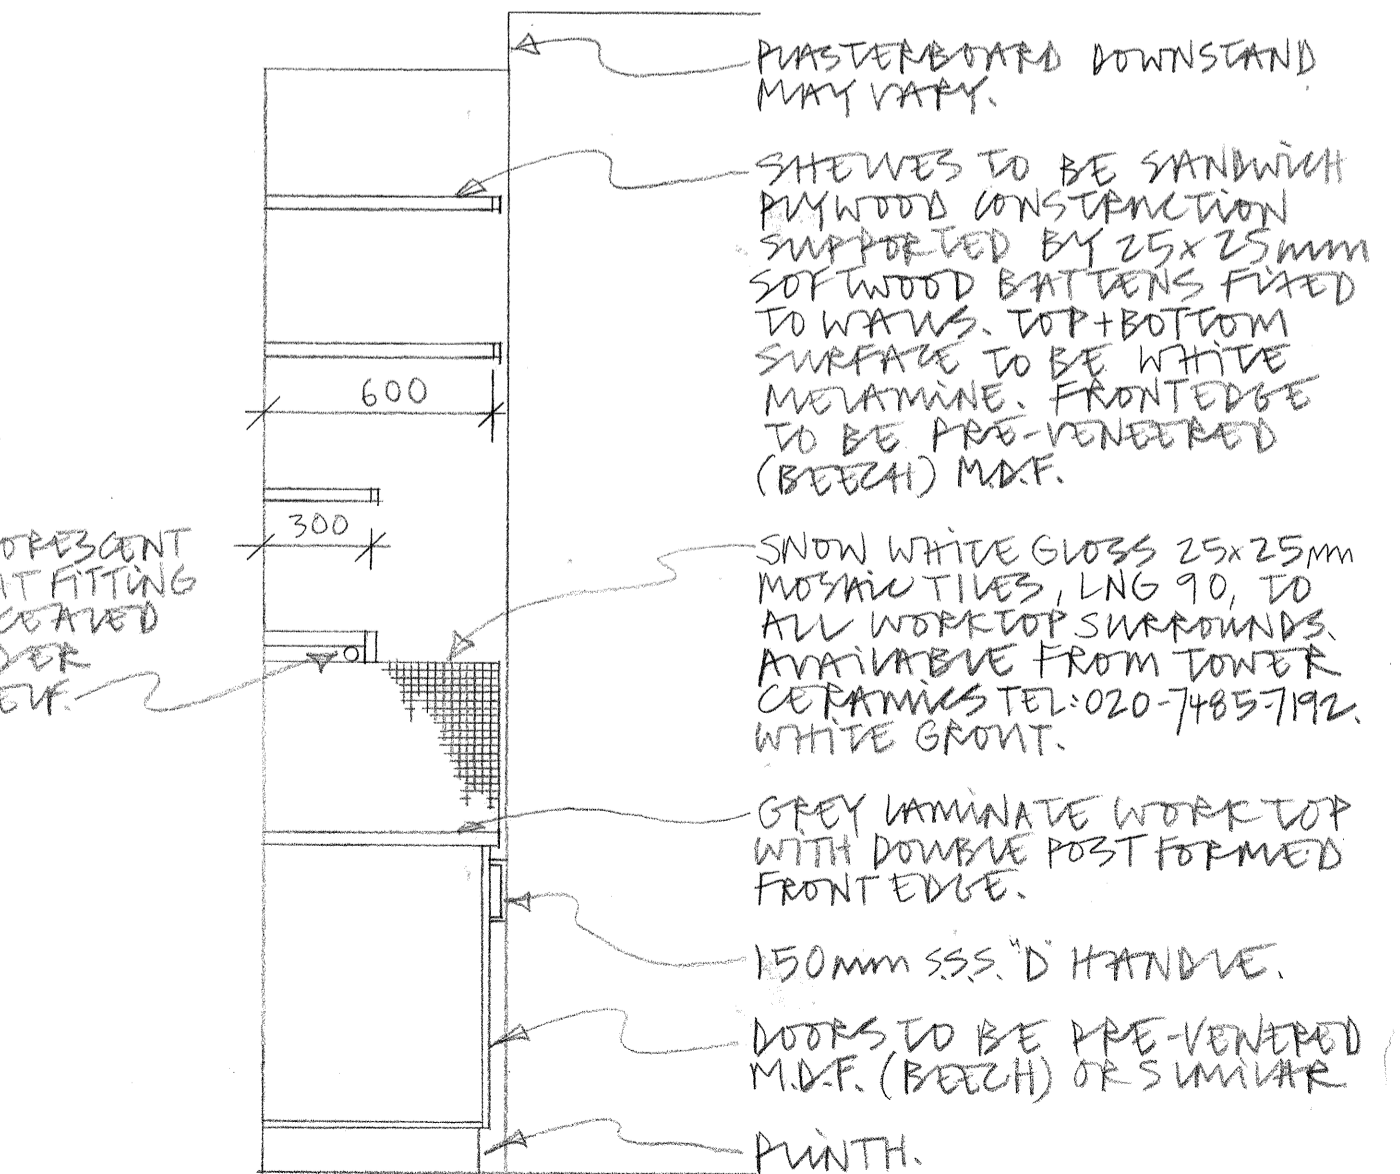 PLASTERBOARD DOWNSTAND
MAY VARY.
SHELVES TO BE SANDWICH
PLYWOOD CONSTRUCTION
SUPPORTED BY 25x25mm
SOFTWOOD BATTENS FIXED
TO WALLS. TOP+BOTTOM
SURFACE TO BE WHITE
MELAMINE. FRONTEDGE
TO BE PRE-VENEERED
(BEECH) M.D.F.
600
300
ORESCENT
HT FITTING
CEALED
DER
ELF.
SNOW WHITE GLOSS 25x25mm
MOSAIC TILES, LNG 90, TO
ALL WORKTOP SURROUNDS.
AVAILABLE FROM TOWER
CERAMICS TEL: 020-7485-7192.
WHITE GROUT.
GREY LAMINATE WORKTOP
WITH DOUBLE POST FORMED
FRONT EDGE.
150mm S.S.S. "D" HANDLE.
DOORS TO BE PRE-VENERED
M.D.F. (BEECH) OR SIMILAR
PLINTH.